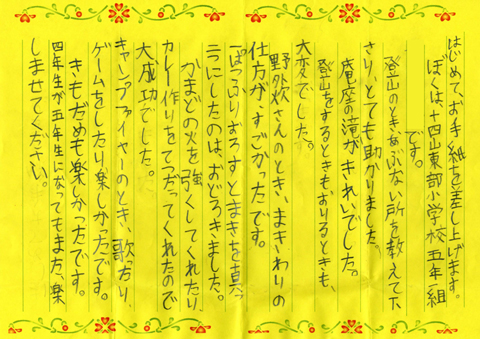 はじめて、お手紙を差し上げます。
ぼくは、十四山東部小学校五年一組
です。
登山のとき、あぶない所を教えて下
さり、とても助かりました。
庵座の滝がきれいでした。
登山をするときもおりるときも、
大変でした。
野外炊さんのとき、まきわりの
仕方がすごかったです。
ぱっぷりおろすとまきを真っ
ニにしたのは、おどろきました。
かまどの火を強くしてくれたり、
カレー作りをてつだってくれたので
大成功でした。
キャンプファイヤーのとき、歌ったり、
ゲームをしたり楽しかったです。
きもだめも楽しかったです。
四年生が五年生になってもまた、楽
しませてください。